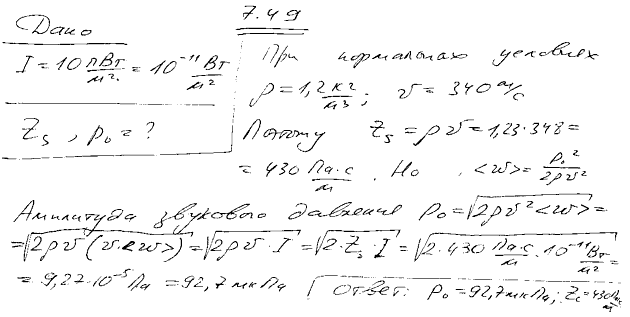 7.49
Дано
I = 10 пВт/м² = 10⁻¹¹ Вт/м²
Z_s, p₀ = ?
При нормальных условиях
ρ = 1,2 кг/м³; v = 340 м/с
Поэтому Z_s = ρv = 1,23·348 =
= 430 Па·с/м. Но <w> = p₀²/2ρv²
Амплитуда звукового давления p₀ = √(2ρv²<w>) =
= √(2ρv(v<w>)) = √(2ρv·I) = √(2·Z_s·I) = √(2·430 Па·с/м·10⁻¹¹ Вт/м²) =
= 9,27·10⁻⁵ Па = 92,7 мкПа
Ответ: p₀ = 92,7 мкПа; Z_s = 430 Па·с/м